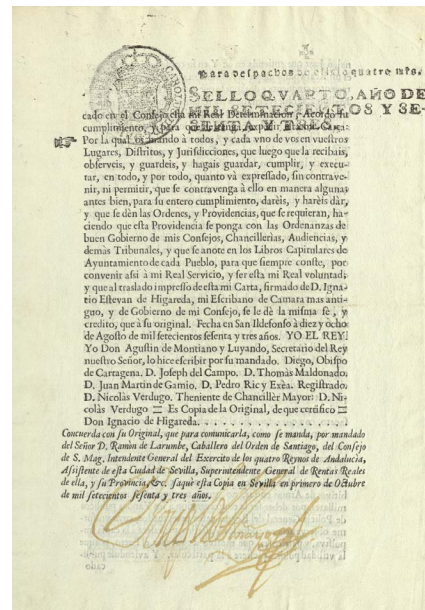 Para despachos de oficio quatro mrs.
SELLO QVARTO, AÑO DE
MIL SETECIENTOS Y SE-
SENTA Y TRES.
cado en el Consejo esta mi Real Determinacion, Acordó su
cumplimiento, y para que le tenga, expedir esta mi Carta:
Por la qual os mando à todos, y cada vno de vos en vuestros
Lugares, Distritos, y Jurisdicciones, que luego que la recibais,
observeis, y guardeis, y hagais guardar, cumplir, y execu-
tar, en todo, y por todo, quanto và expressado, sin contrave-
nir, ni permitir, que se contravenga à ello en manera alguna;
antes bien, para su entero cumplimiento, darèis, y harèis dàr,
y que se dèn las Ordenes, y Providencias, que se requieran, ha-
ciendo que esta Providencia se ponga con las Ordenanzas de
buen Gobierno de mis Consejos, Chancillerias, Audiencias, y
demàs Tribunales, y que se anote en los Libros Capitulares de
Ayuntamiento de cada Pueblo, para que siempre conste, por
convenir asi à mi Real Servicio, y ser esta mi Real voluntad;
y que al traslado impresso de esta mi Carta, firmado de D. Igna-
tio Estevan de Higareda, mi Escribano de Camara mas anti-
guo, y de Gobierno de mi Consejo, se le dè la misma fè, y
credito, que à su original. Fecha en San Ildefonso à diez y ocho
de Agosto de mil setecientos sesenta y tres años. YO EL REY.
Yo Don Agustin de Montiano y Luyando, Secretario del Rey
nuestro Señor, lo hice escribir por su mandado. Diego, Obispo
de Cartagena. D. Joseph del Campo. D. Thomàs Maldonado.
D. Juan Martin de Gamio. D. Pedro Ric y Exèa. Registrado.
D. Nicolàs Verdugo. Theniente de Chancillèr Mayor: D. Ni-
colàs Verdugo = Es Copia de la Original, de que certifico =
Don Ignacio de Higareda.
Concuerda con su Original, que para comunicarla, como se manda, por mandado
del Señor D. Ramòn de Larumbe, Caballero del Orden de Santiago, del Consejo
de S. Mag. Intendente General del Exercito de los quatro Reynos de Andalucìa,
Assistente de esta Ciudad de Sevilla, Superintendente General de Rentas Reales
de ella, y su Provincia, &c. saquè esta Copia en Sevilla en primero de Octubre
de mil setecientos sesenta y tres años.